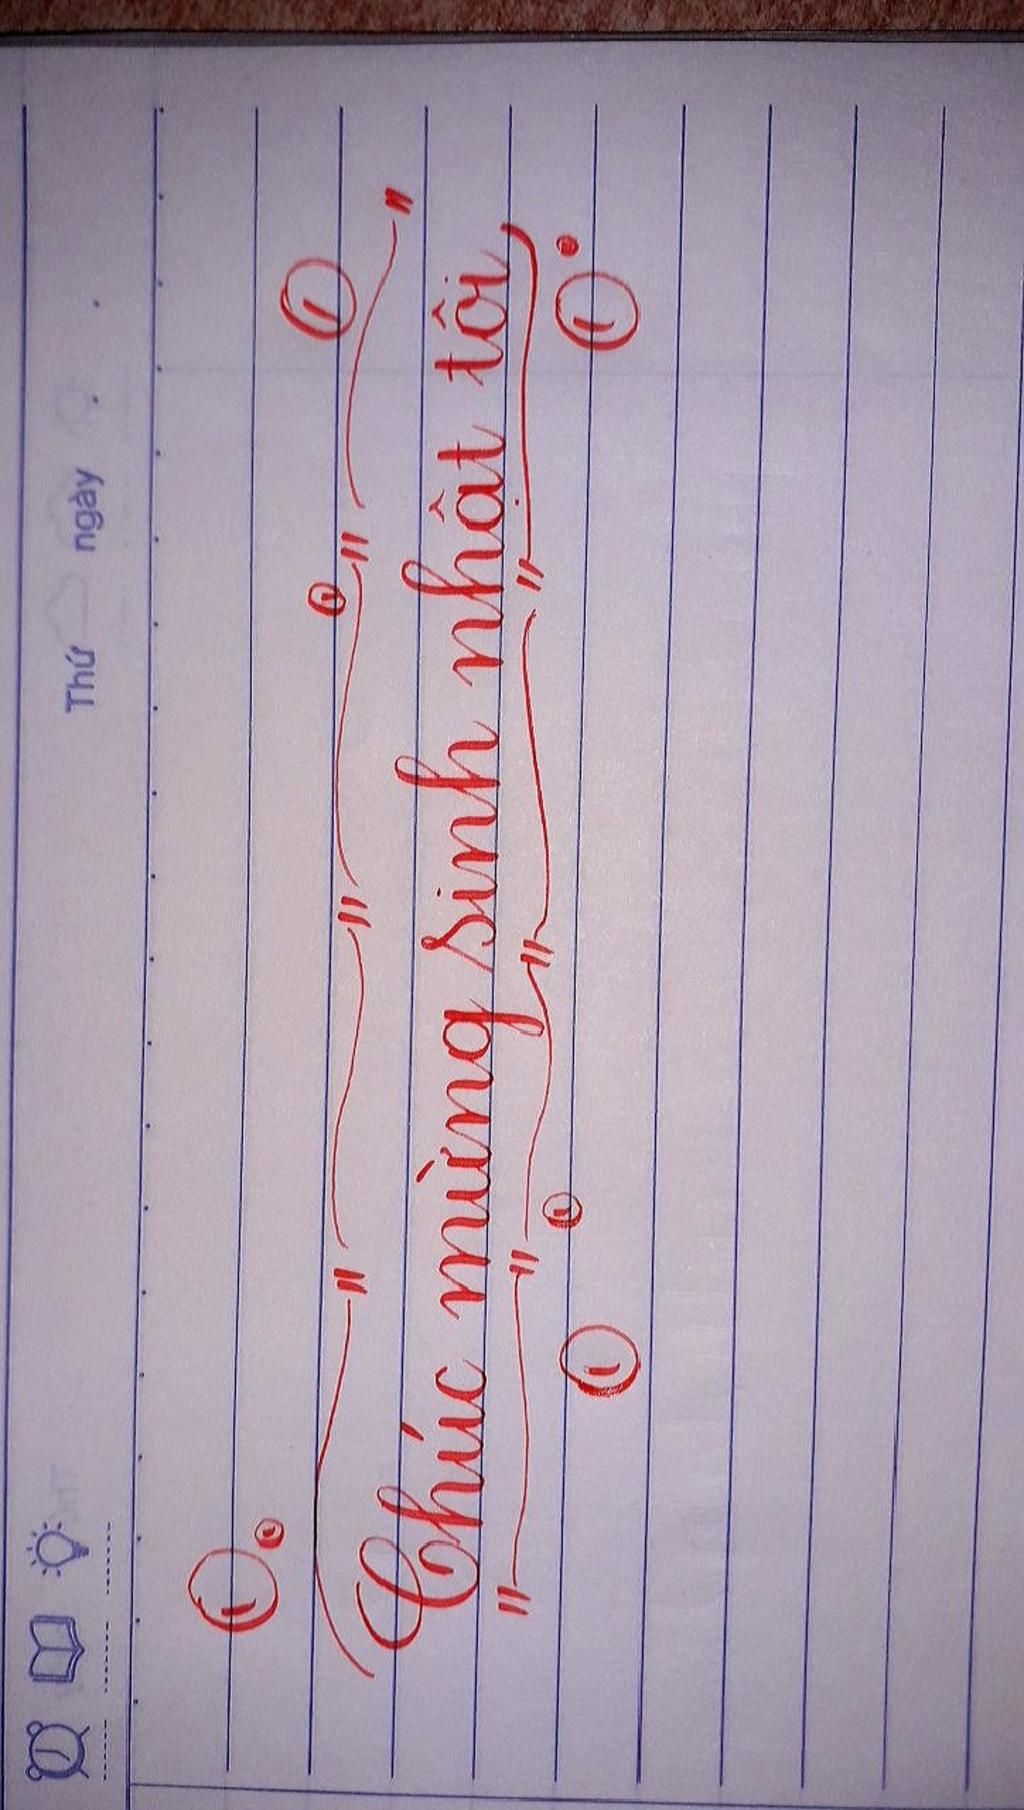 Thứ ngày
Chúc mừng sinh nhật tôi